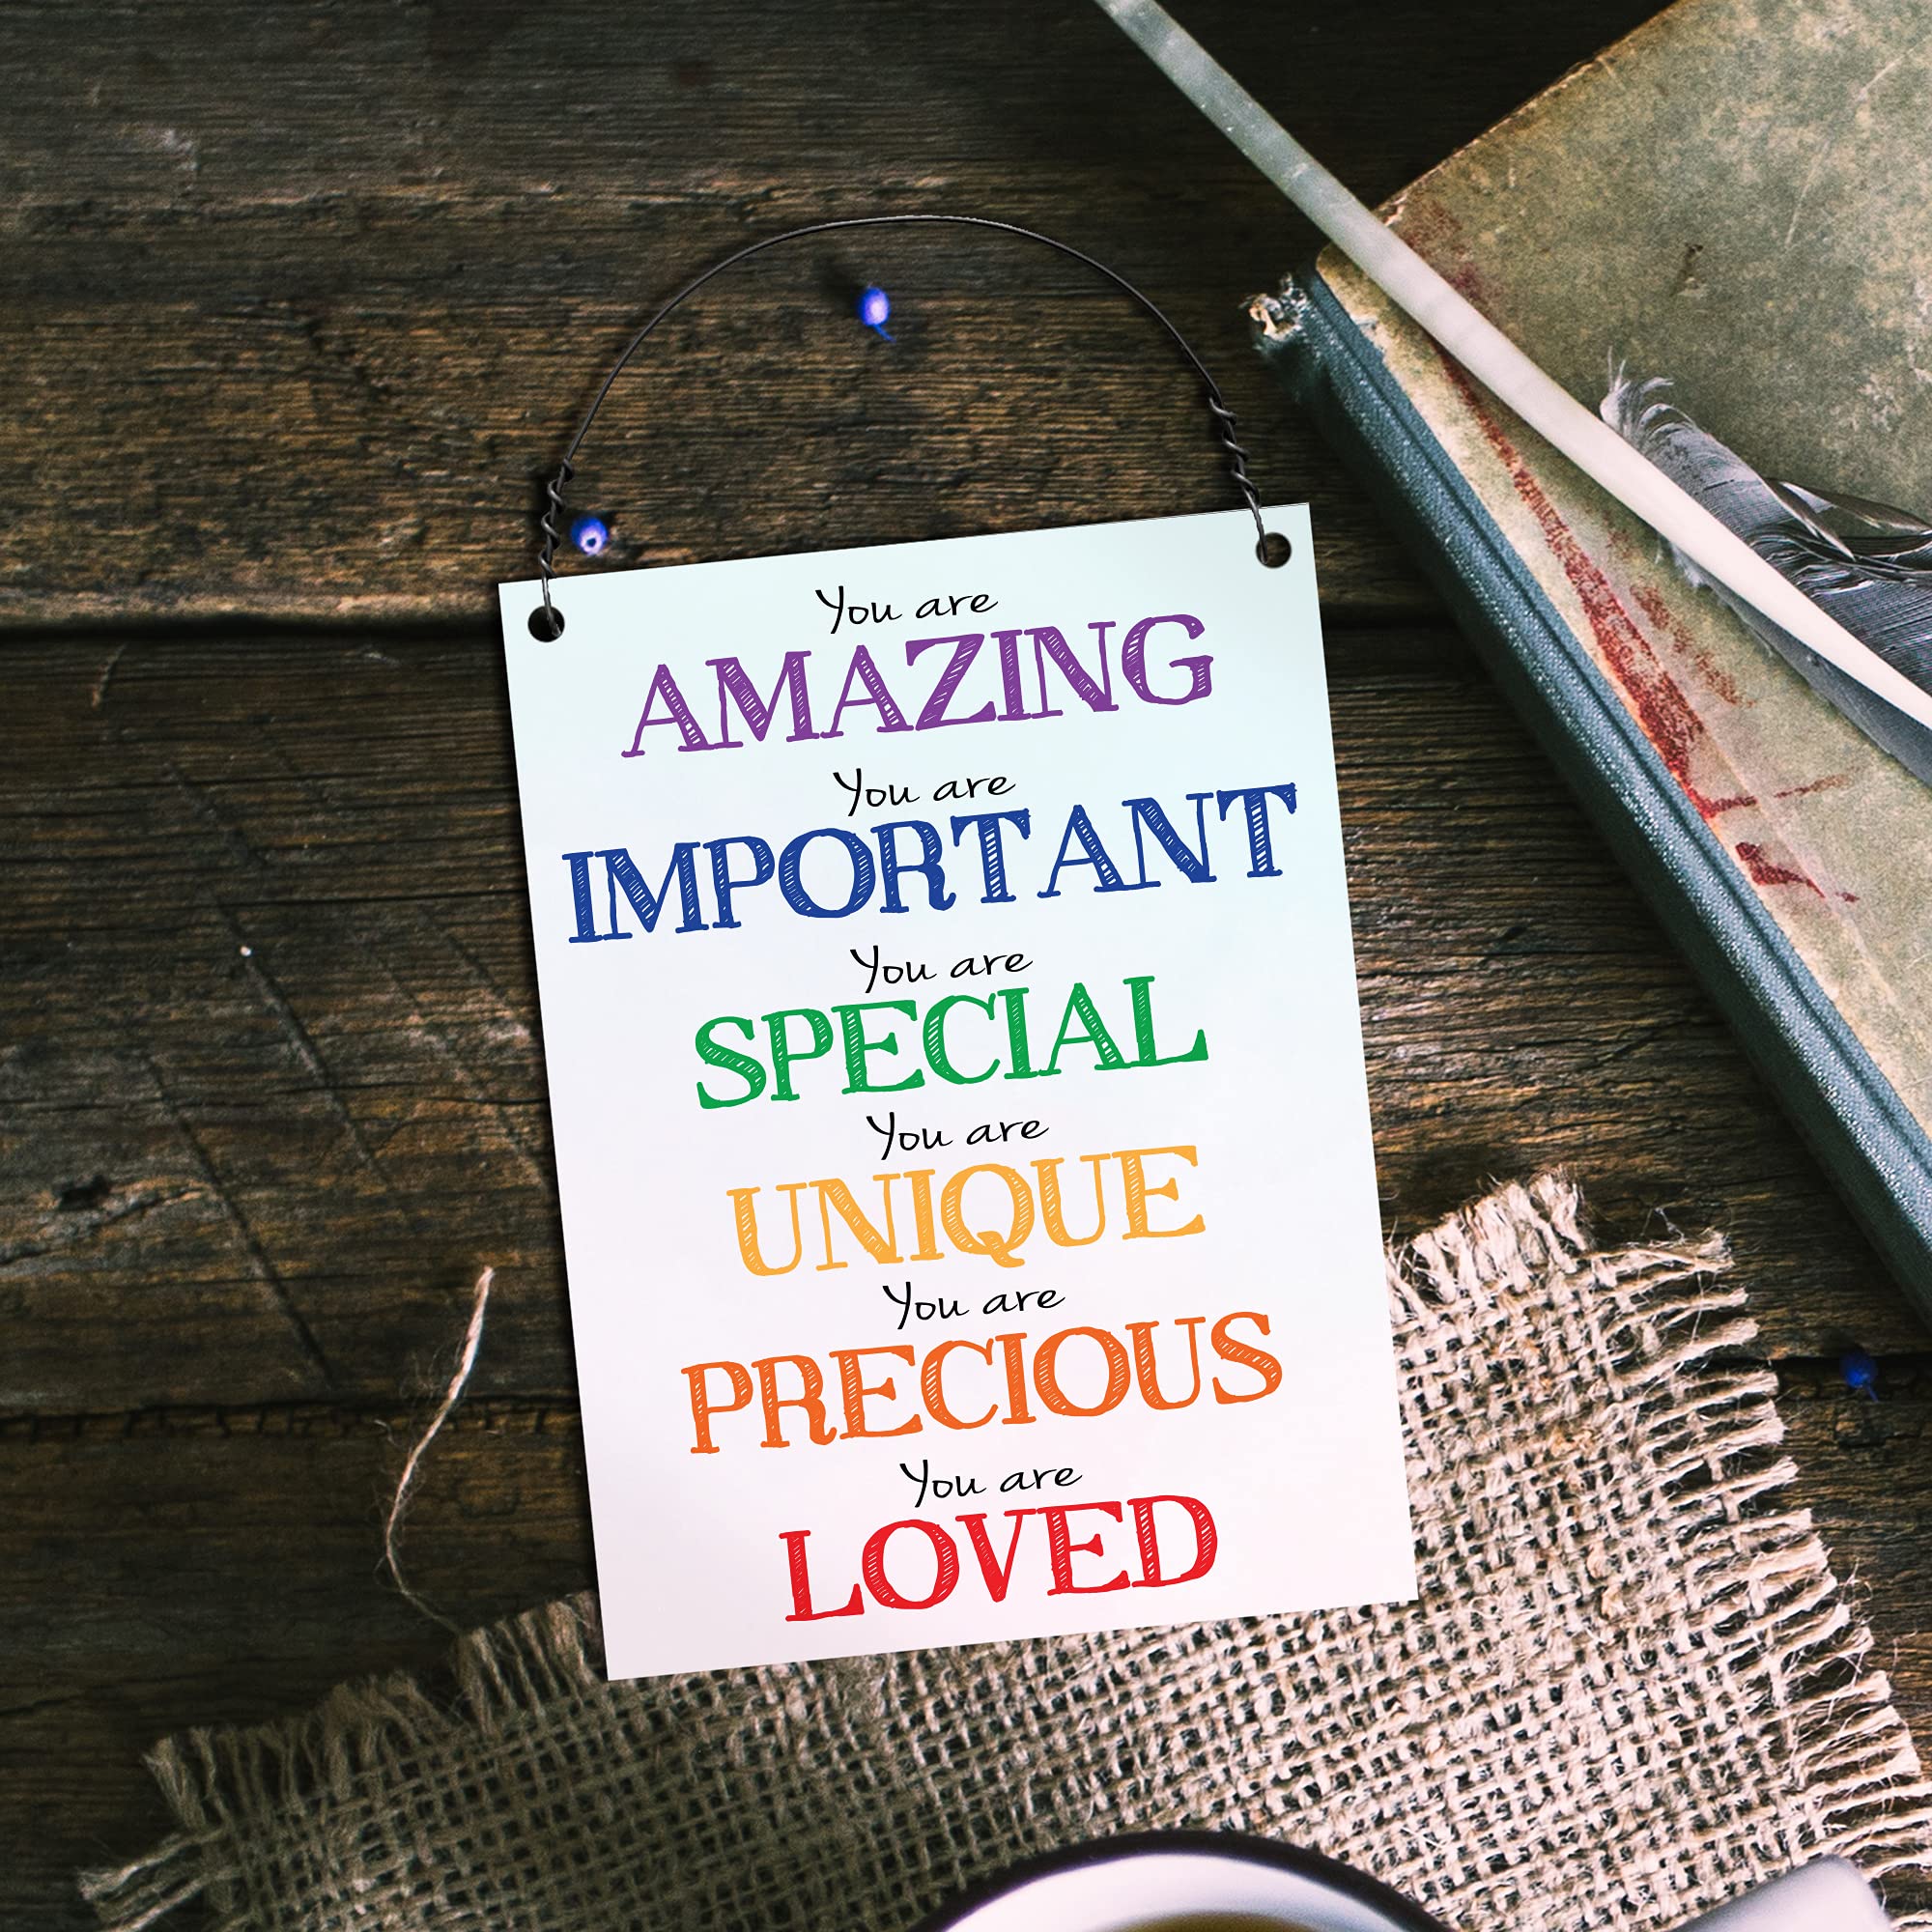 You are
AMAZING
You are
IMPORTANT
You are
SPECIAL
You are
UNIQUE
You are
PRECIOUS
You are
LOVED